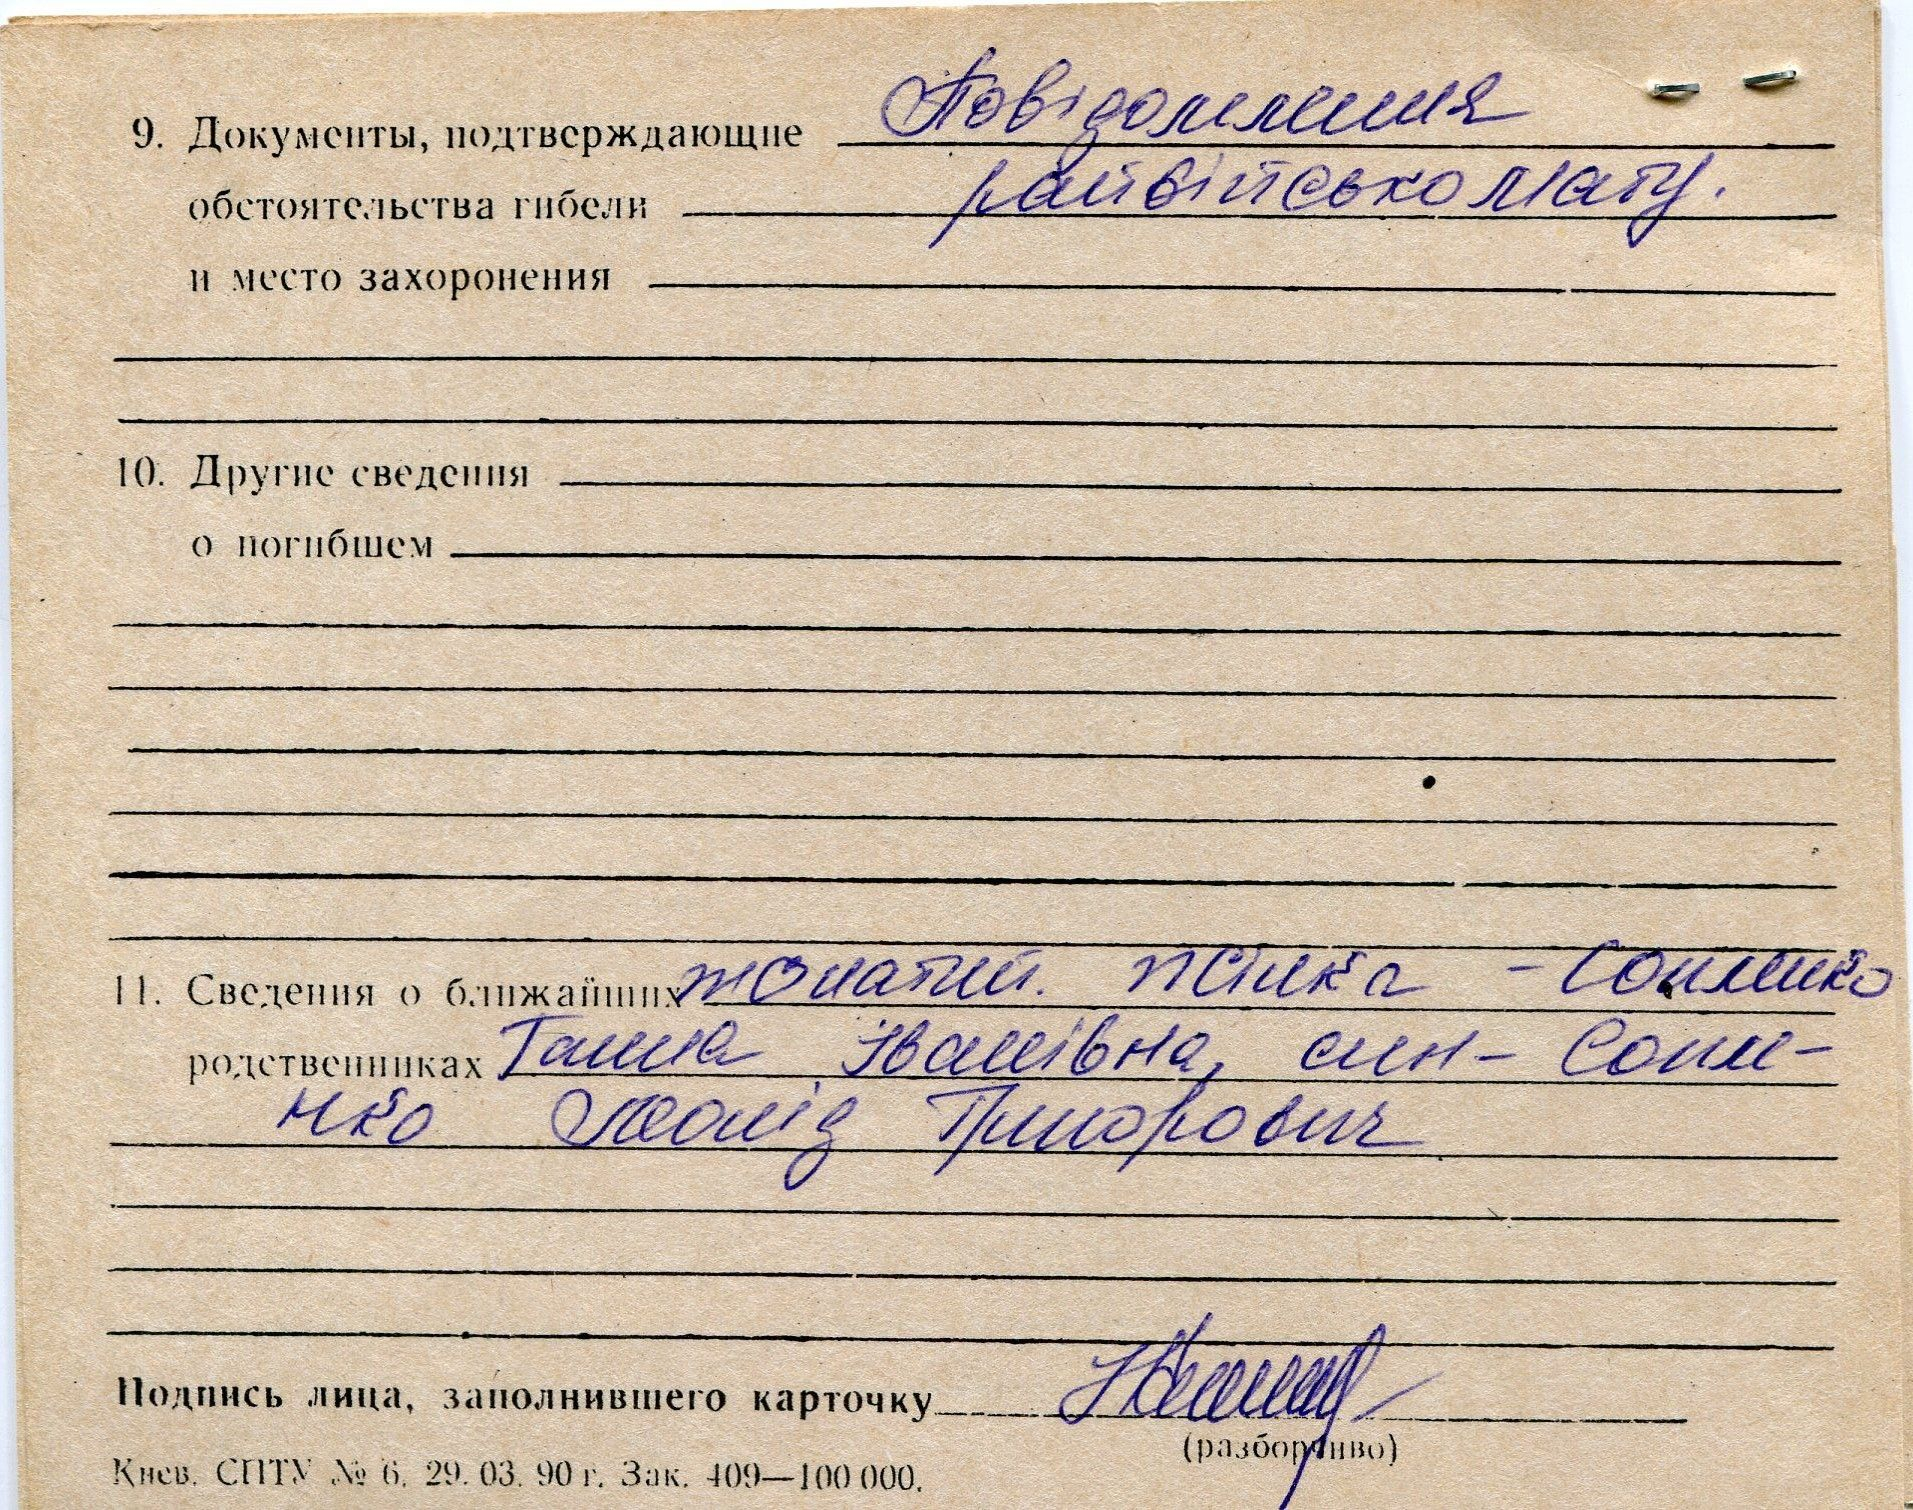 9. Документы, подтверждающие Повідомлення
обстоятельства гибели райвійськомату.
и место захоронения
10. Другие сведения
о погибшем
11. Сведения о ближайших жонатий. жінка - Сошенко
родственниках Ганна Іванівна, син - Соше-
нко Леонід Григорович
Подпись лица, заполнившего карточку
(разборчиво)
Киев. СПТУ № 6. 29. 03. 90 г. Зак. 409—100 000.